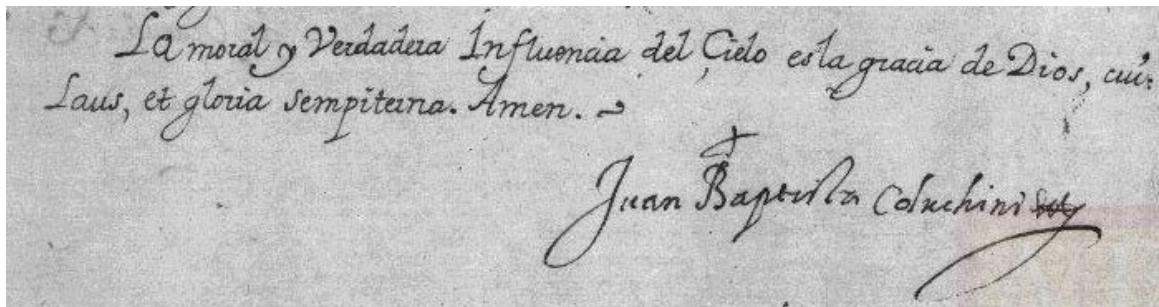 La moral y Verdadera Influencia del Çielo es la gracia de Dios, cui:
Laus, et gloria sempiterna. Amen.
Juan Baptista Coluchini